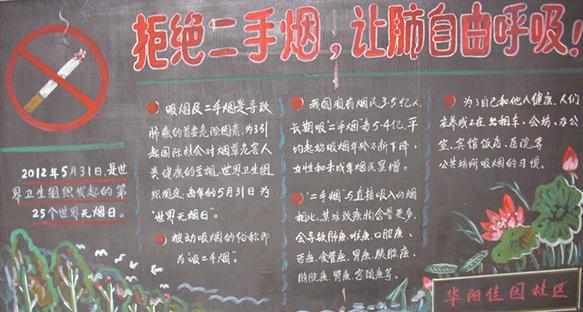 拒绝二手烟，让肺自由呼吸！
2012年5月31日，是世
界卫生组织发起的第
25个世界无烟日。
吸烟及二手烟是导致
肺癌的首要危险因素，为引
起国际社会对烟草危害人
类健康的重视，世界卫生组
织规定：每年的5月31日为
“世界无烟日”。
被动吸烟的俗称即
为“吸二手烟”。
我国现有烟民3.5亿人，
长期吸“二手烟”者5.4亿，平
均起始吸烟年龄不断下降，
女性和未成年烟民突增。
“二手烟”与直接吸入的烟
相比，其致癌的含量更多，
会导致肺癌、喉癌、口腔癌、
舌癌、食管癌、胃癌、胰腺癌、
膀胱癌、肾癌、宫颈癌等。
为了自己和他人健康，人们
未养成不在出租车、会场、办公
室、宾馆饭店、医院等
公共场所吸烟的习惯。
华阳佳园社区